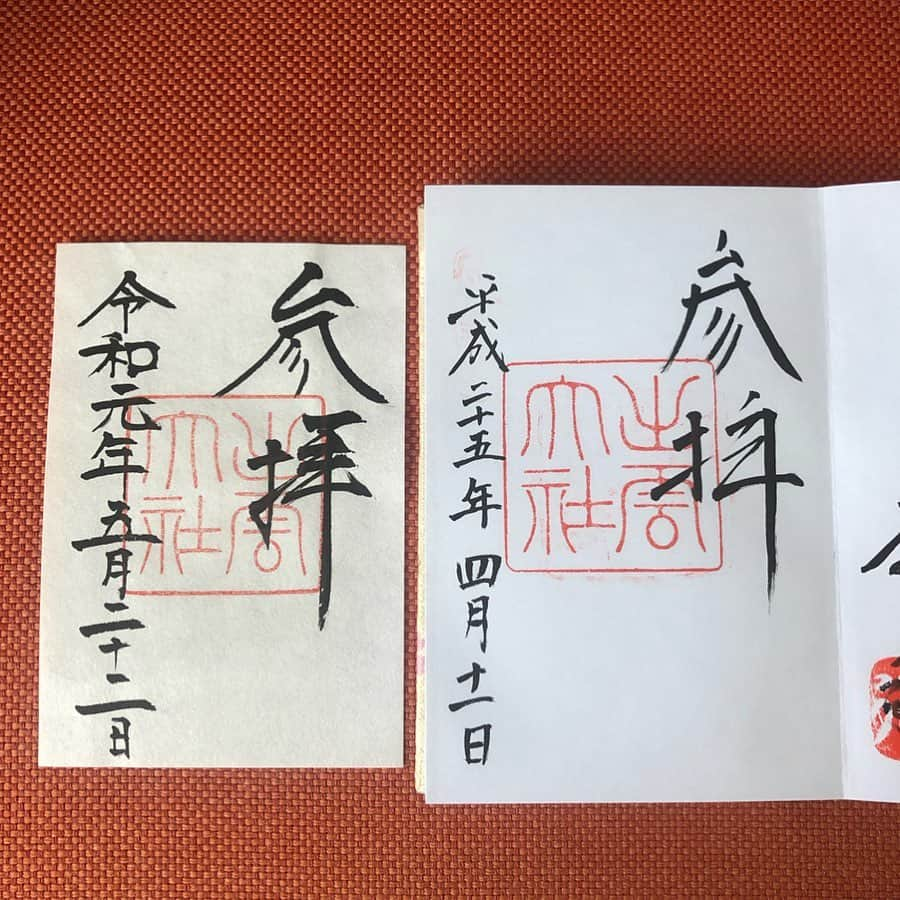 参拝
出雲
大社
令和元年五月二十二日
参拝
出雲
大社
平成二十五年四月十一日